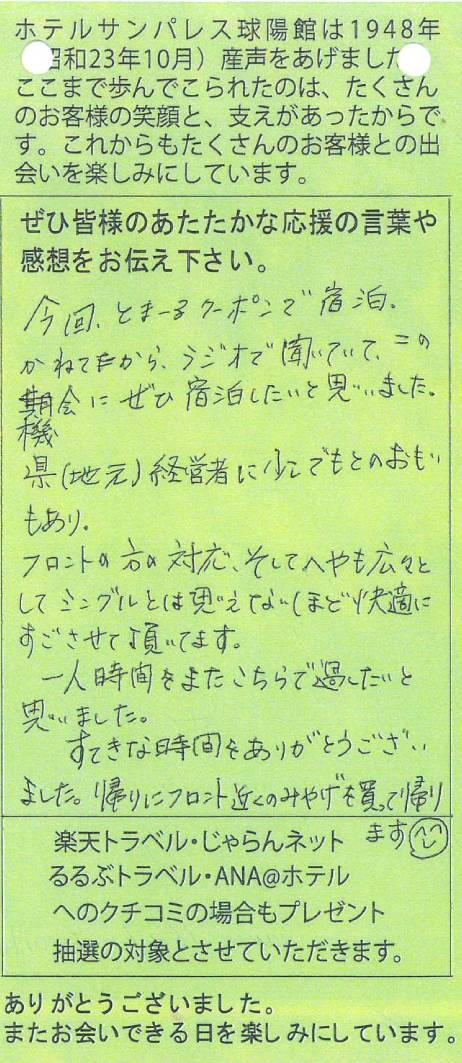 ホテルサンパレス球陽館は1948年
昭和23年10月）産声をあげました
ここまで歩んでこられたのは、たくさん
のお客様の笑顔と、支えがあったからで
す。これからもたくさんのお客様との出
会いを楽しみにしています。
ぜひ皆様のあたたかな応援の言葉や
感想をお伝え下さい。
今回、とまーるクーポンで宿泊、
かねてから、ラジオで聞いていて、この
機会にぜひ宿泊したいと思いました。
県(地元)経営者に少しでもとのおもい
もあり。
フロントの方の対応、そしてへやも広々と
してシングルとは思えないほど快適に
すごさせて頂いてます。
一人時間をまたこちらで過したいと
思いました。
すてきな時間をありがとうござい
ました。帰りにフロント近くのみやげを買って帰り
ます
楽天トラベル・じゃらんネット
るるぶトラベル・ANA@ホテル
へのクチコミの場合もプレゼント
抽選の対象とさせていただきます。
ありがとうございました。
またお会いできる日を楽しみにしています。